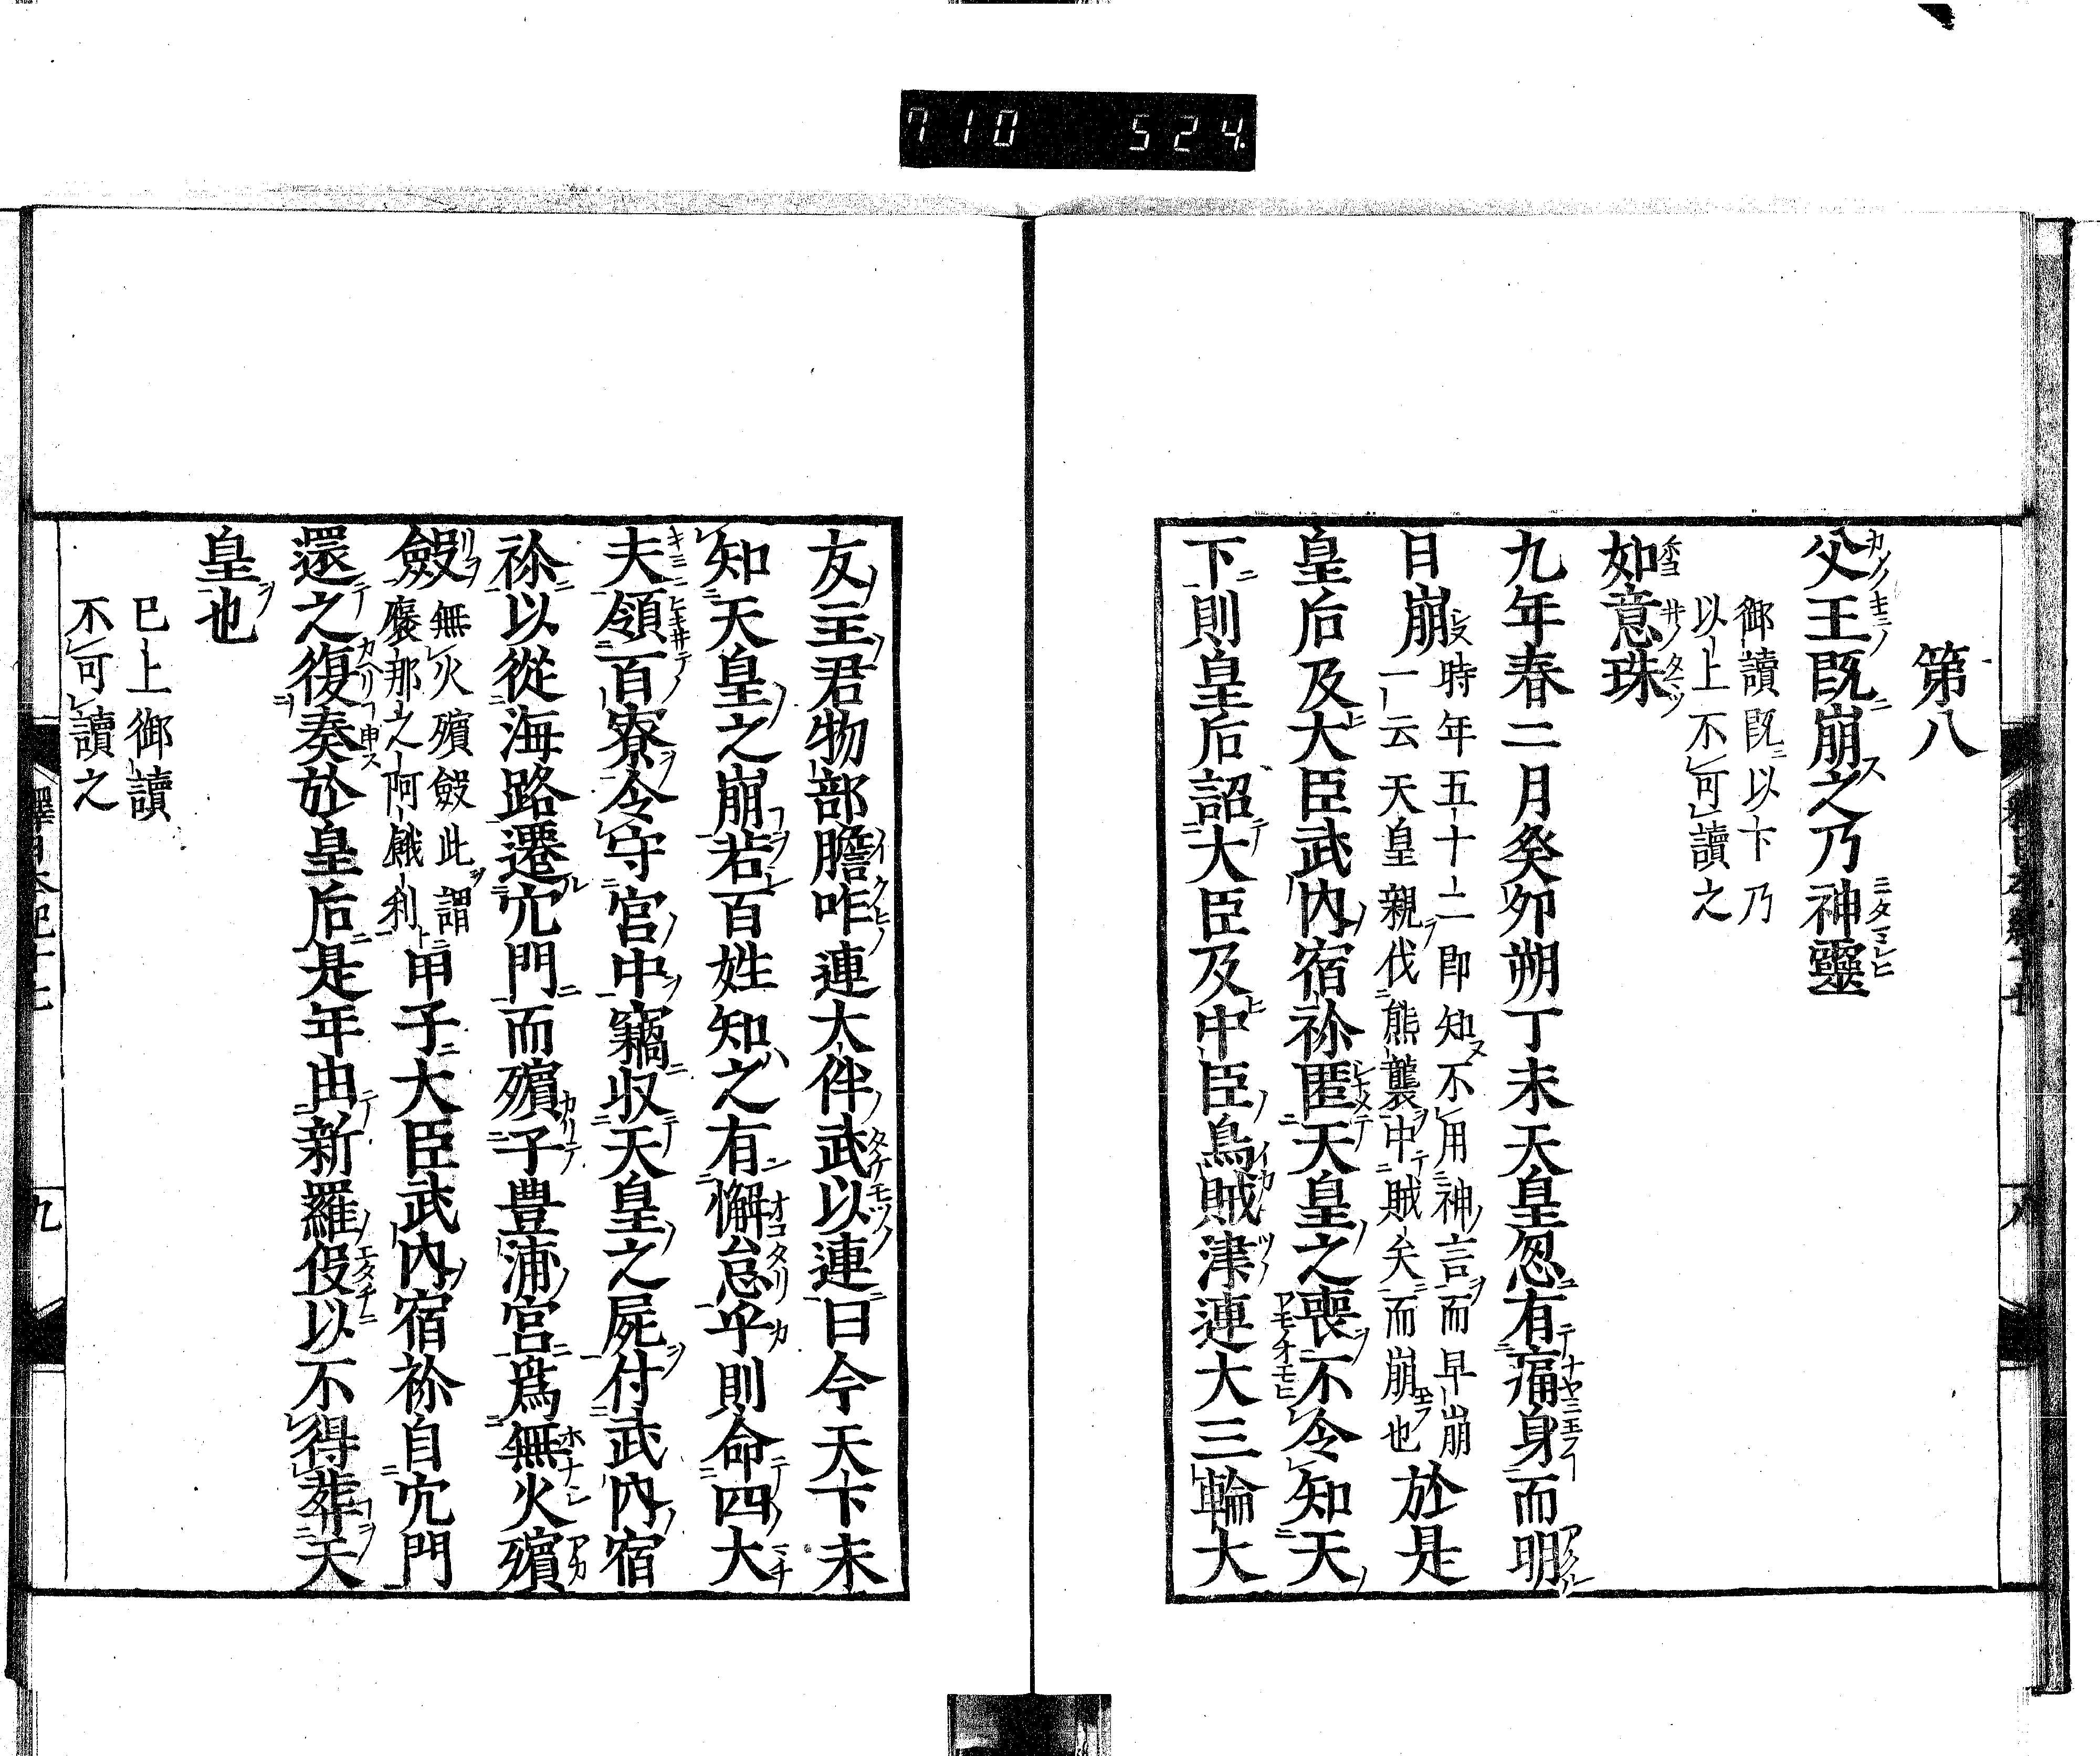 710 524
第八
父王既崩之乃神靈
御讀既以下乃
以上不可讀之
如意珠
九年春二月癸卯朔丁未天皇忽有痛身而明
日崩
時年五十二即知不用神言而早崩
一云天皇親伐熊襲中賊矢而崩也
於是
皇后及大臣武内宿祢匿天皇之喪不令知天
下則皇后詔大臣及中臣烏賊津連大三輪大
友主君物部膽咋連大伴武以連曰今天下未
知天皇之崩若百姓知之有懈怠乎則命四大
夫領百寮令守宮中竊収天皇之屍付武内宿
祢以從海路遷穴門而殯于豊浦宮爲無火殯
斂
無火殯斂此謂
褒那之阿餓利
甲子大臣武内宿祢自穴門
還之復奏於皇后是年由新羅役以不得葬天
皇也
已上御讀
不可讀之
九